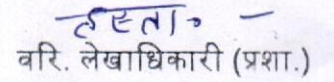 हस्ता॰ —
वरि. लेखाधिकारी (प्रशा.)